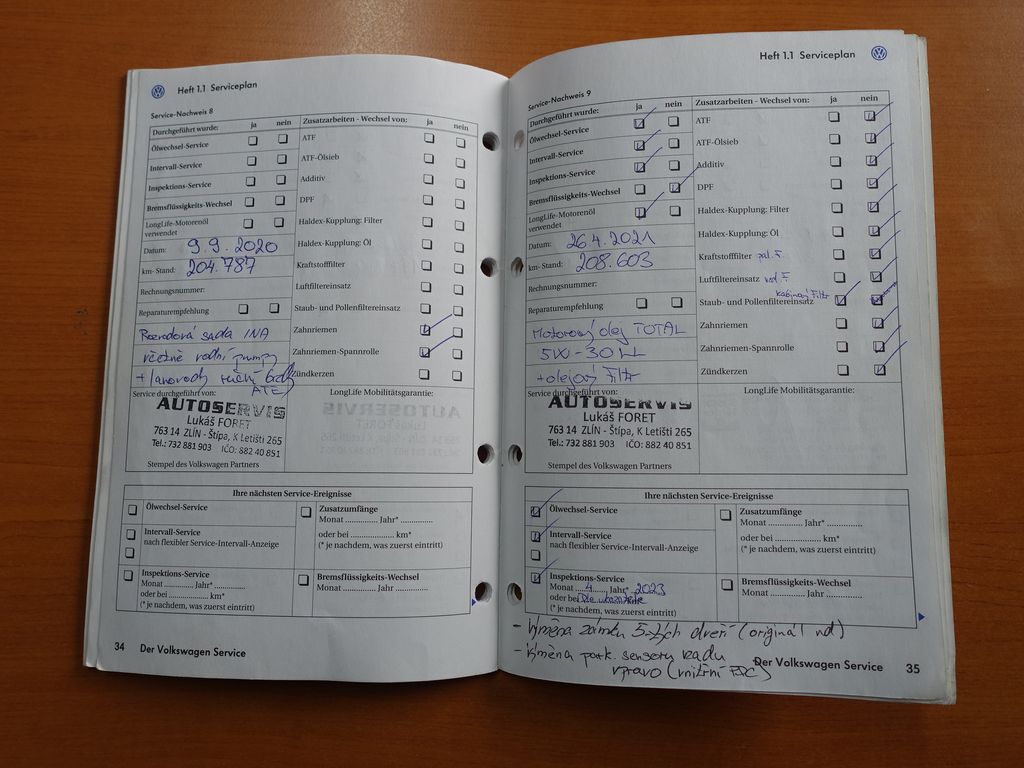 Heft 1.1 Serviceplan
Service-Nachweis 8
Durchgeführt wurde: ja nein
Ölwechsel-Service
Intervall-Service
Inspektions-Service
Bremsflüssigkeits-Wechsel
LongLife-Motorenöl
verwendet
Datum: 9.9.2020
km-Stand: 204.787
Rechnungsnummer:
Reparaturempfehlung
Rozvodová sada INA
včetně vodní pumpy
+ lanovody ruční brzdy
ATE
Zusatzarbeiten - Wechsel von: ja nein
ATF
ATF-Ölsieb
Additiv
DPF
Haldex-Kupplung: Filter
Haldex-Kupplung: Öl
Kraftstofffilter
Luftfiltereinsatz
Staub- und Pollenfiltereinsatz
Zahnriemen
Zahnriemen-Spannrolle
Zündkerzen
Service durchgeführt von:
AUTOSERVIS
Lukáš FORET
763 14 ZLÍN - Štípa, K Letišti 265
Tel.: 732 881 903 IČO: 882 40 851
Stempel des Volkswagen Partners
LongLife Mobilitätsgarantie:
Ihre nächsten Service-Ereignisse
Ölwechsel-Service
Intervall-Service
nach flexibler Service-Intervall-Anzeige
Inspektions-Service
Monat .............. Jahr* ..............
oder bei .................... km*
(* je nachdem, was zuerst eintritt)
Zusatzumfänge
Monat .............. Jahr* ..............
oder bei .................... km*
(* je nachdem, was zuerst eintritt)
Bremsflüssigkeits-Wechsel
Monat .............. Jahr ..............
34 Der Volkswagen Service
Heft 1.1 Serviceplan
Service-Nachweis 9
Durchgeführt wurde: ja nein
Ölwechsel-Service
Intervall-Service
Inspektions-Service
Bremsflüssigkeits-Wechsel
LongLife-Motorenöl
verwendet
Datum: 26.4.2021
km-Stand: 208.603
Rechnungsnummer:
Reparaturempfehlung
Motorový olej TOTAL
5W-30 LL
+ olejový filtr
Zusatzarbeiten - Wechsel von: ja nein
ATF
ATF-Ölsieb
Additiv
DPF
Haldex-Kupplung: Filter
Haldex-Kupplung: Öl
Kraftstofffilter pal. F.
Luftfiltereinsatz vzd. F.
kabinový filtr
Staub- und Pollenfiltereinsatz
Zahnriemen
Zahnriemen-Spannrolle
Zündkerzen
Service durchgeführt von:
AUTOSERVIS
Lukáš FORET
763 14 ZLÍN - Štípa, K Letišti 265
Tel.: 732 881 903 IČO: 882 40 851
Stempel des Volkswagen Partners
LongLife Mobilitätsgarantie:
Ihre nächsten Service-Ereignisse
Ölwechsel-Service
Intervall-Service
nach flexibler Service-Intervall-Anzeige
Inspektions-Service
Monat 4 Jahr* 2023
oder bei Dle ukazatele
(* je nachdem, was zuerst eintritt)
Zusatzumfänge
Monat .............. Jahr* ..............
oder bei .................... km*
(* je nachdem, was zuerst eintritt)
Bremsflüssigkeits-Wechsel
Monat .............. Jahr ..............
- Výměna zámku 5-tých dveří (originál vd)
- Výměna park. sensoru vzadu
vpravo (vnitřní PDC)
Der Volkswagen Service 35